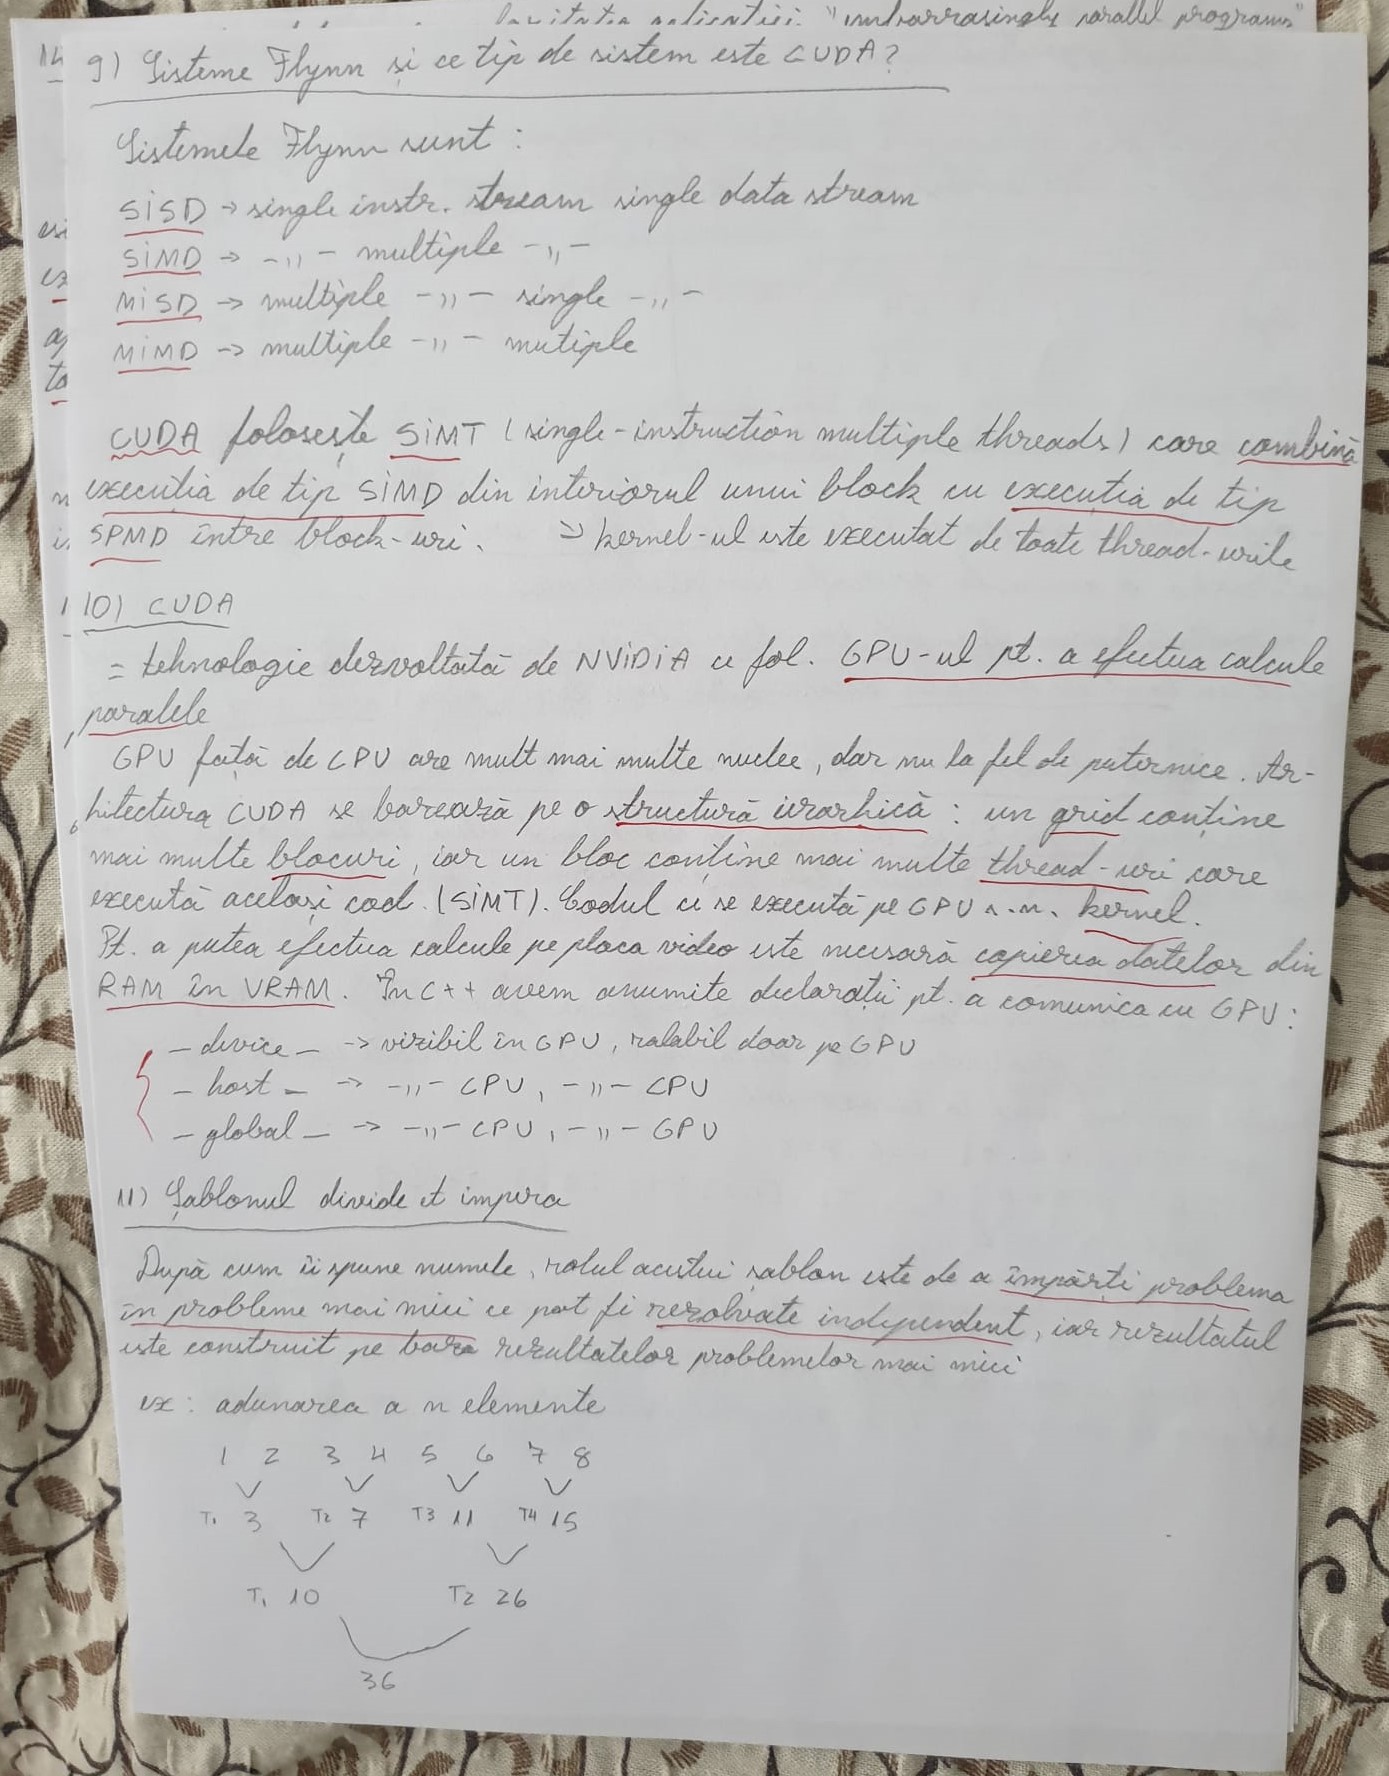 "embarrasingly parallel programs"
14
9) Sisteme Flynn și ce tip de sistem este CUDA?
Sistemele Flynn sunt :
SiSD → single instr. stream single data stream
SiMD → -„- multiple -„-
MiSD → multiple -„- single -„-
MiMD → multiple -„- mutiple
CUDA folosește SiMT (single-instruction multiple threads) care combină
execuția de tip SiMD din interiorul unui block cu execuția de tip
SPMD între block-uri. → kernel-ul este executat de toate thread-urile
10) CUDA
= tehnologie dezvoltată de NViDiA ce fol. GPU-ul pt. a efectua calcule
paralele
GPU față de CPU are mult mai multe nuclee, dar nu la fel de puternice. Ar-
hitectura CUDA se bazează pe o structură ierarhică : un grid conține
mai multe blocuri, iar un bloc conține mai multe thread-uri care
execută același cod. (SiMT). Codul ce se execută pe GPU s.n. kernel.
Pt. a putea efectua calcule pe placa video este necesară copierea datelor din
RAM în VRAM. În C++ avem anumite declarații pt. a comunica cu GPU :
- device - → vizibil în GPU, rulabil doar pe GPU
- host - → -„- CPU, -„- CPU
- global - → -„- CPU, -„- GPU
11) Șablonul divide et impera
După cum îi spune numele, rolul acestui șablon este de a împărți problema
în probleme mai mici ce pot fi rezolvate independent, iar rezultatul
este construit pe baza rezultatelor problemelor mai mici
ex : adunarea a n elemente
1 2 3 4 5 6 7 8
T1 3 T2 7 T3 11 T4 15
T1 10 T2 26
36